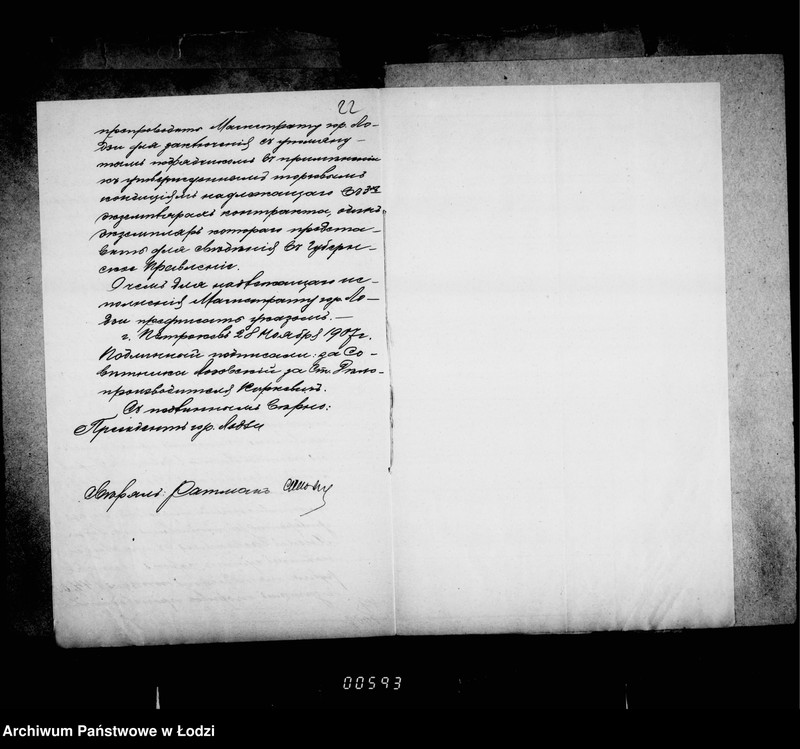 22
препроводить Магистрату гор. Ло-
дзи для заключения съ упомяну-
тымъ подрядчикомъ въ применении
къ утвержденнымъ торговымъ
кондиціямъ надлежащаго въ 3хъ
экземплярахъ контракта, одинъ
экземпляръ котораго предста-
вить для свѣдѣнія въ Губерн-
ское Правленіе.
О чемъ для надлежащаго ис-
полненія Магистрату гор. Ло-
дзи предписать указомъ. —
г. Петроковъ 28 Ноября 1907 г.
Подлинный подписали: за Со-
вѣтника за Ст. Дѣло-
производителя
Съ подлиннымъ вѣрно:
Президентъ гор. Лодзи
Свѣрялъ: Ратманъ
00593
Archiwum Państwowe w Łodzi